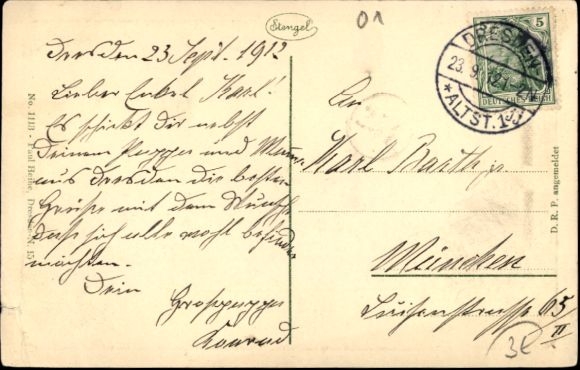 Stengel
01
Dresden 23 Sept. 1912
Lieber Enkel Karl!
Es schickt dir nebst
Deinem Pappa und Mama
aus Dresden die besten
Grüße mit dem Wunsche
dass sich alle wohl befinden
möchten.
Dein
Grosspappa
Konrad
No. 1113 - Paul Heine, Dresden-N. 15
DRESDEN
23.9.12
*ALTST.1
5
DEUTSCHES REICH
An
Karl Barth jr.
München
Luisenstrasse 65
II
D. R. P. angemeldet
3E